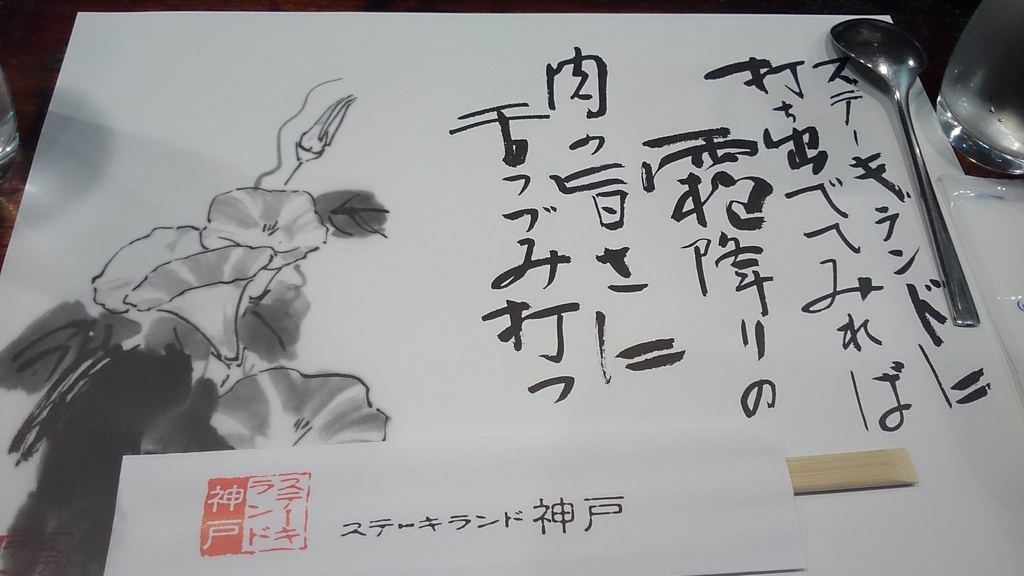 ステーキランドに
打ち出べてみれば
霜降りの
肉の旨さに
舌つづみ打つ
ステーキ
ランド
神戸
ステーキランド神戸